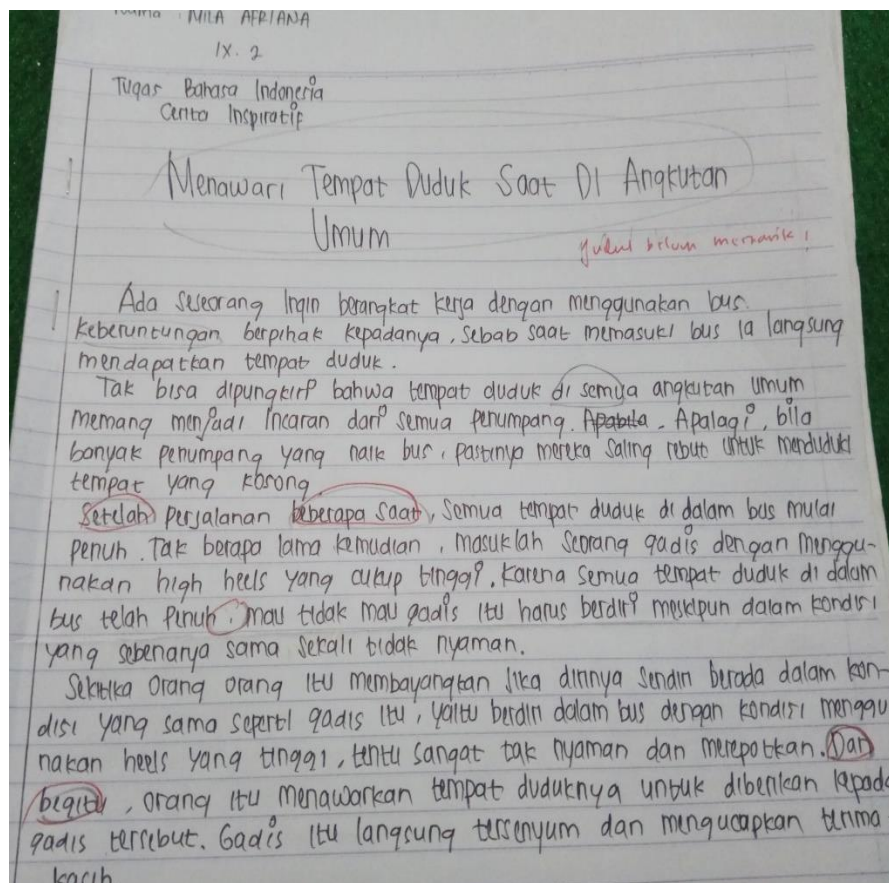 Nama : NILA AFRIANA
IX. 2
Tugas Bahasa Indonesia
Cerita Inspiratif
Menawari Tempat Duduk Saat DI Angkutan
Umum
Judul belum menarik !
Ada seseorang Ingin berangkat kerja dengan menggunakan bus.
Keberuntungan berpihak kepadanya, sebab saat memasuki bus Ia langsung
mendapatkan tempat duduk.
Tak bisa dipungkiri bahwa tempat duduk di semua angkutan Umum
memang menjadi Incaran dari semua penumpang. Apabila. Apalagi, bila
banyak penumpang yang naik bus, pastinya mereka saling rebut untuk menduduki
tempat yang kosong
Setelah Perjalanan beberapa saat, semua tempat duduk di dalam bus mulai
penuh. Tak berapa lama kemudian, masuklah seorang gadis dengan menggu-
nakan high heels yang cukup tinggi. Karena semua tempat duduk di dalam
bus telah Penuh, mau tidak mau gadis itu harus berdiri meskipun dalam kondisi
yang sebenarya sama sekali tidak nyaman.
Seketika Orang orang Itu membayangkan Jika dirinya Sendiri berada dalam kon-
disi yang sama seperti gadis itu, yaitu berdiri dalam bus dengan kondisi menggu
nakan heels yang tinggi, tentu sangat tak nyaman dan merepotkan. Dan
begitu, orang itu menawarkan tempat duduknya untuk diberikan kepada
gadis tersebut. Gadis itu langsung tersenyum dan mengucapkan terima
kasih